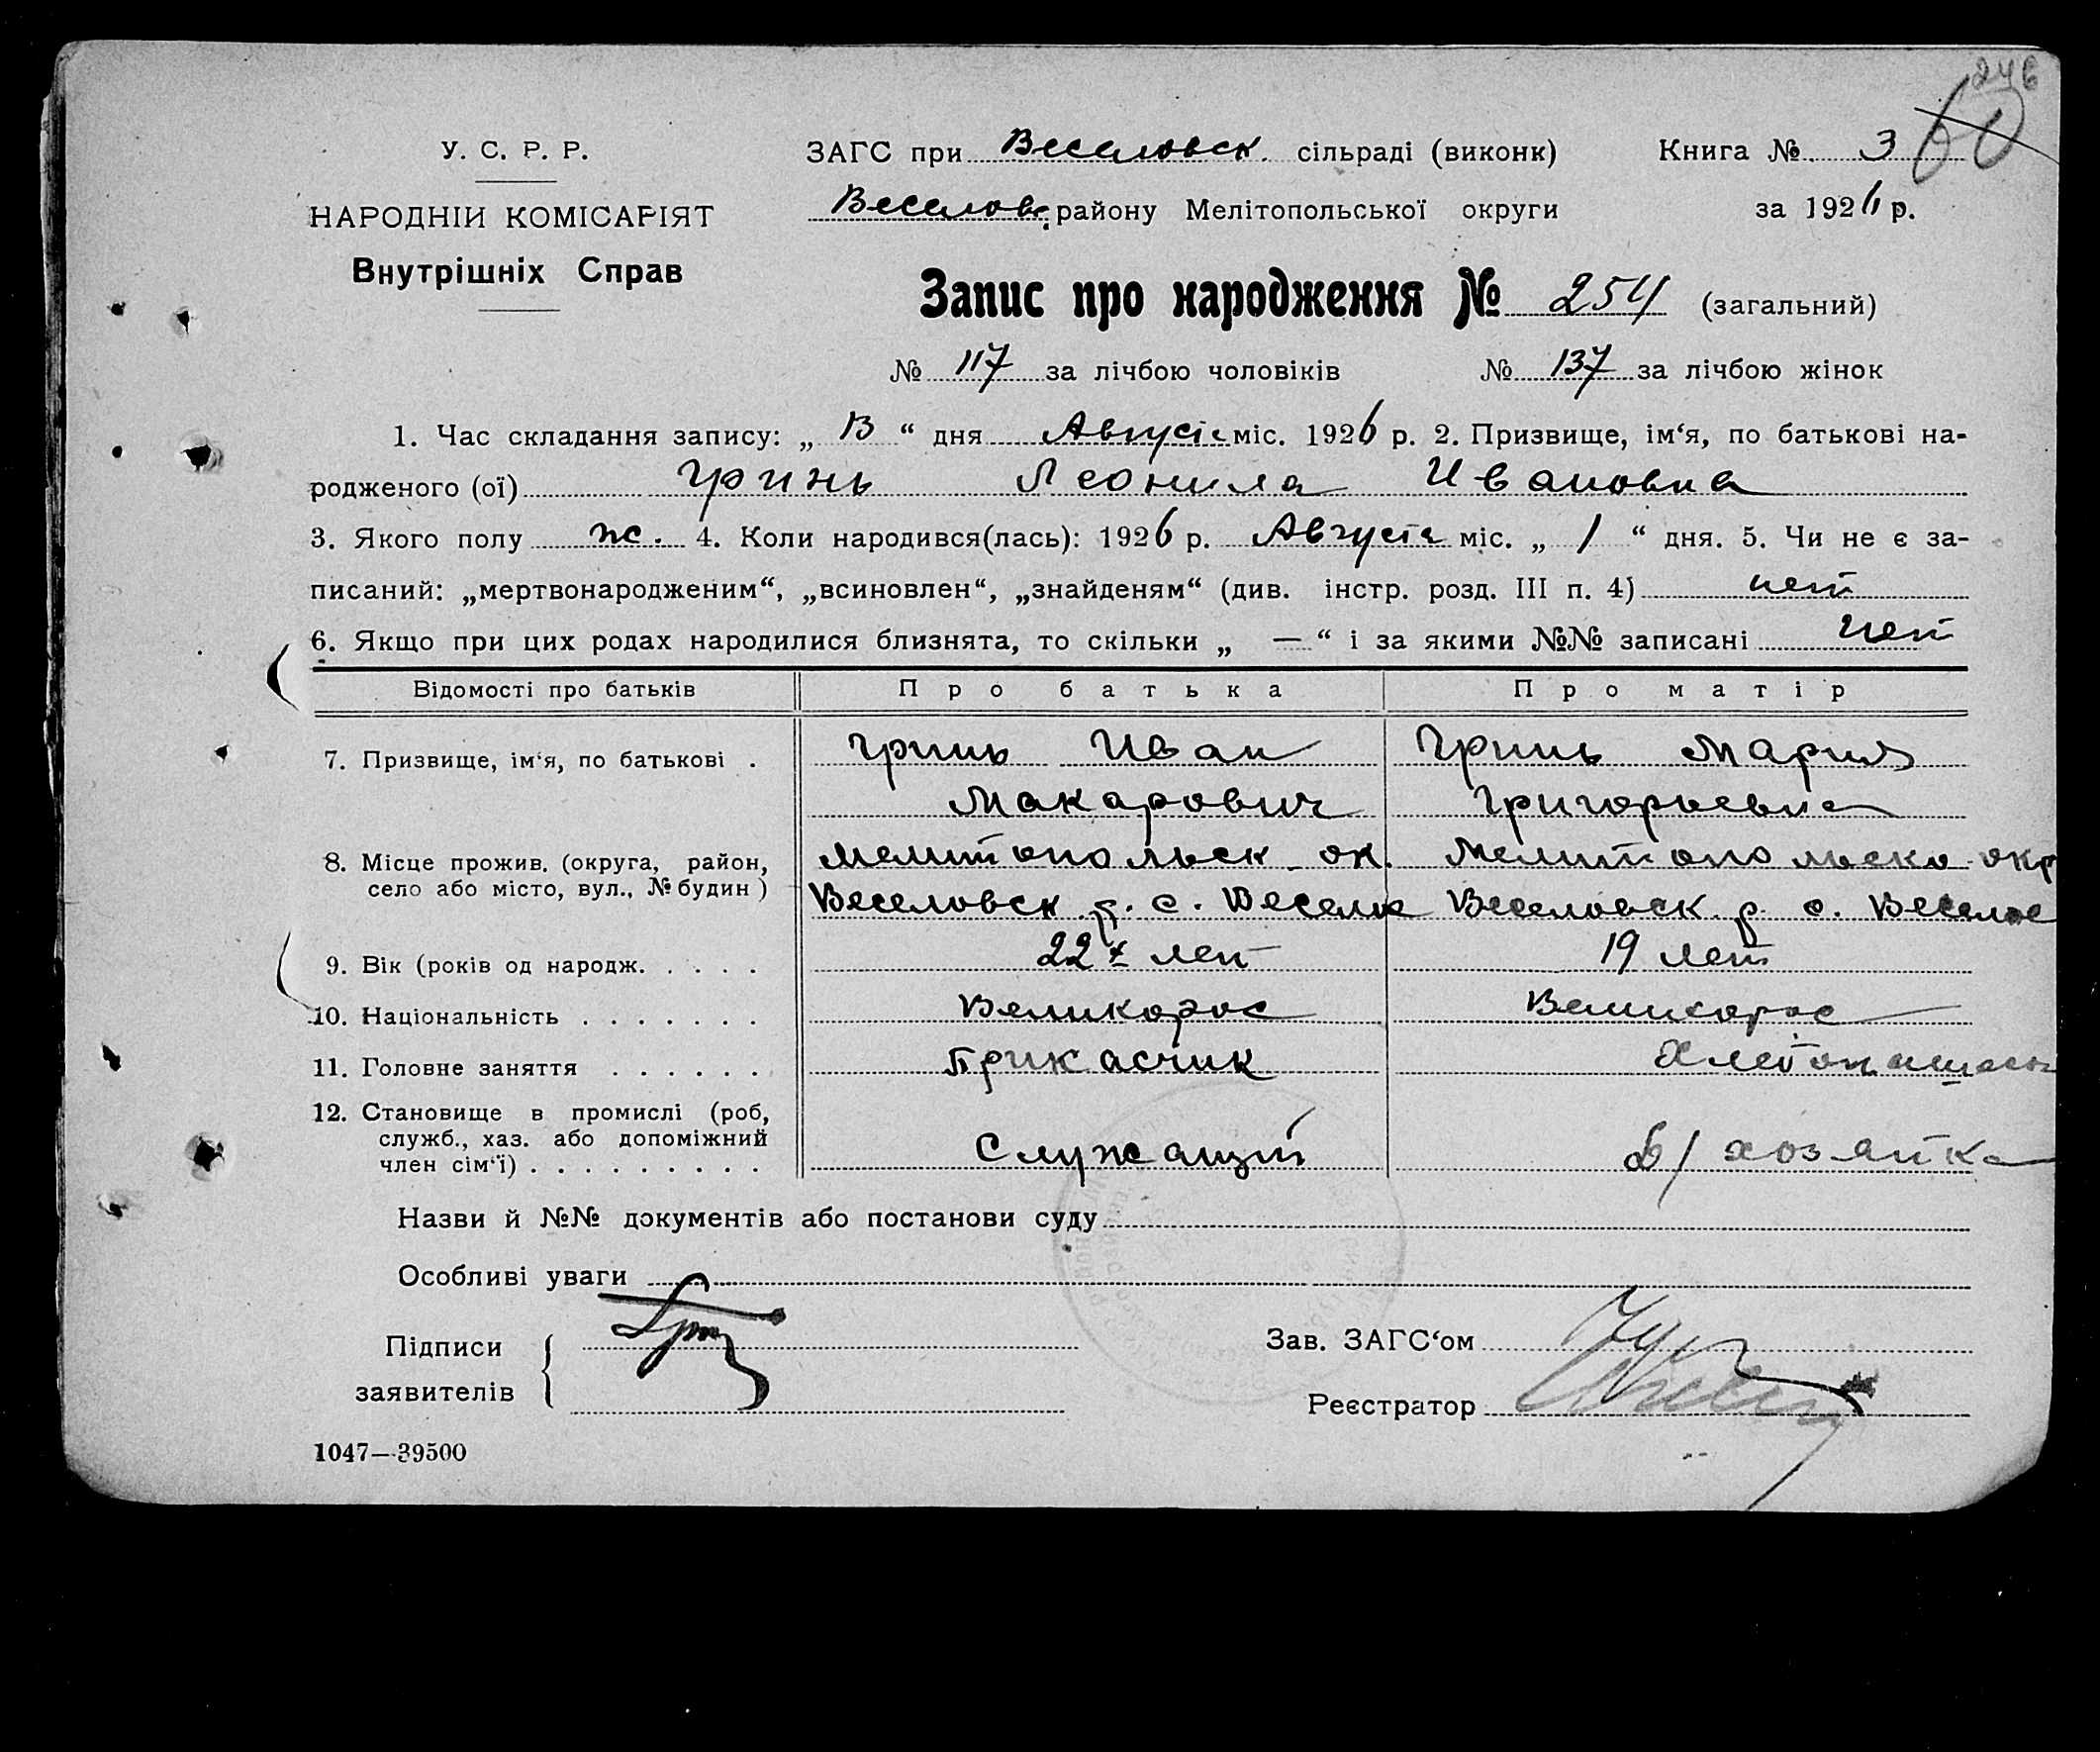 246
60
У. С. Р. Р.
НАРОДНІЙ КОМІСАРІЯТ
Внутрішніх Справ
ЗАГС при Веселовск. сільраді (виконк)
Книга № 3
Веселовс. району Мелітопольської округи
за 1926 р.
Запис про народження № 254 (загальний)
№ 117 за лічбою чоловіків № 137 за лічбою жінок
1. Час складання запису: „ 13 “ дня Августа міс. 1926 р. 2. Призвище, ім‘я, по батькові на-
родженого (ої) Гринь Леонила Ивановна
3. Якого полу ж. 4. Коли народився(лась): 1926 р. Августа міс. „ 1 “ дня. 5. Чи не є за-
писаний: „мертвонародженим“, „всиновлен“, „знайденям“ (див. інстр. розд. III п. 4) нет
6. Якщо при цих родах народилися близнята, то скільки „ — “ і за якими №№ записані нет
Відомості про батьків Про батька Про матір
7. Призвище, ім‘я, по батькові . Гринь Иван Гринь Мария
Макарович Григорьевна
8. Місце прожив. (округа, район, Мелитопольск. ок. Мелитопольско окр
село або місто, вул., № будин ) Веселовск р. с. Веселое Веселовск. р. с. Веселое
9. Вік (років од народж. . . . . 22х лет 19 лет
10. Національність . . . . . . . Великорос Великорос
11. Головне заняття . . . . . . Прикасчик Хлебопашест
12. Становище в промислі (роб,
служб., хаз. або допоміжний
член сім‘ї) . . . . . . . . . Служащий Д/хозяйка
Назви й №№ документів або постанови суду
Особливі уваги
Підписи
заявителів
Зав. ЗАГС‘ом
Реєстратор
1047—39500